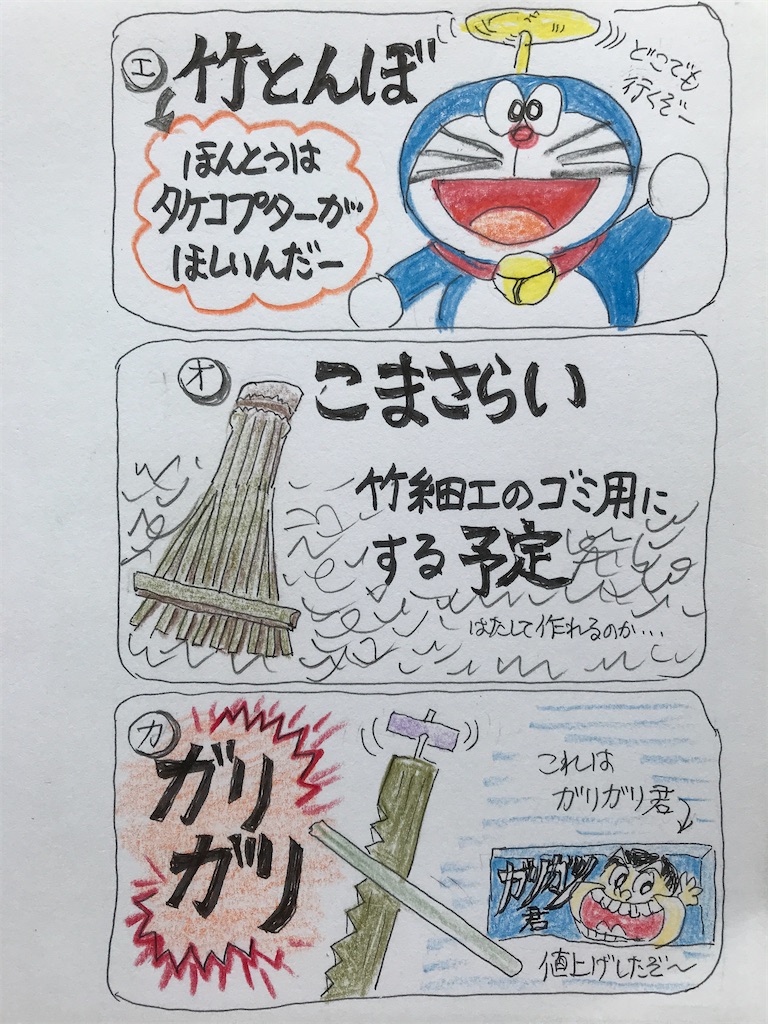 エ 竹とんぼ
どこでも
行くぞー
ほんとうは
タケコプターが
ほしいんだー
オ こまさらい
竹細工のゴミ用に
する予定
はたして作れるのか…
カ ガリ
ガリ
これは
ガリガリ君
ガリガリ
君
値上げしたぞ〜